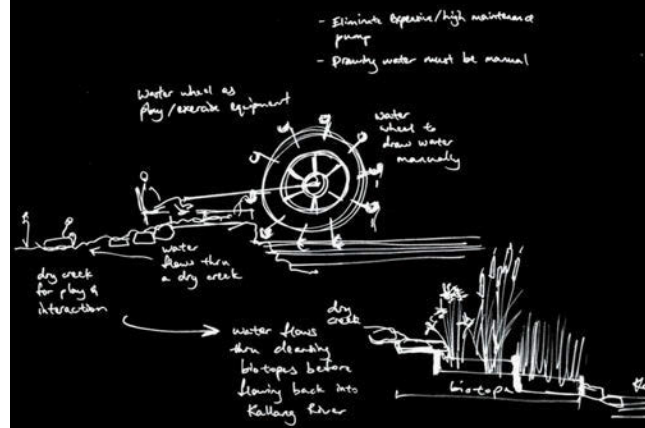 - Eliminate Expensive/high maintenance
pump
- Drawing water must be manual
Water wheel as
play/exercise equipment
water
wheel to
draw water
manually
water
flows thru
a dry creek
dry creek
for play &
interaction
water flows
thru cleansing
biotopes before
flowing back into
Kallang River
dry
creek
biotope